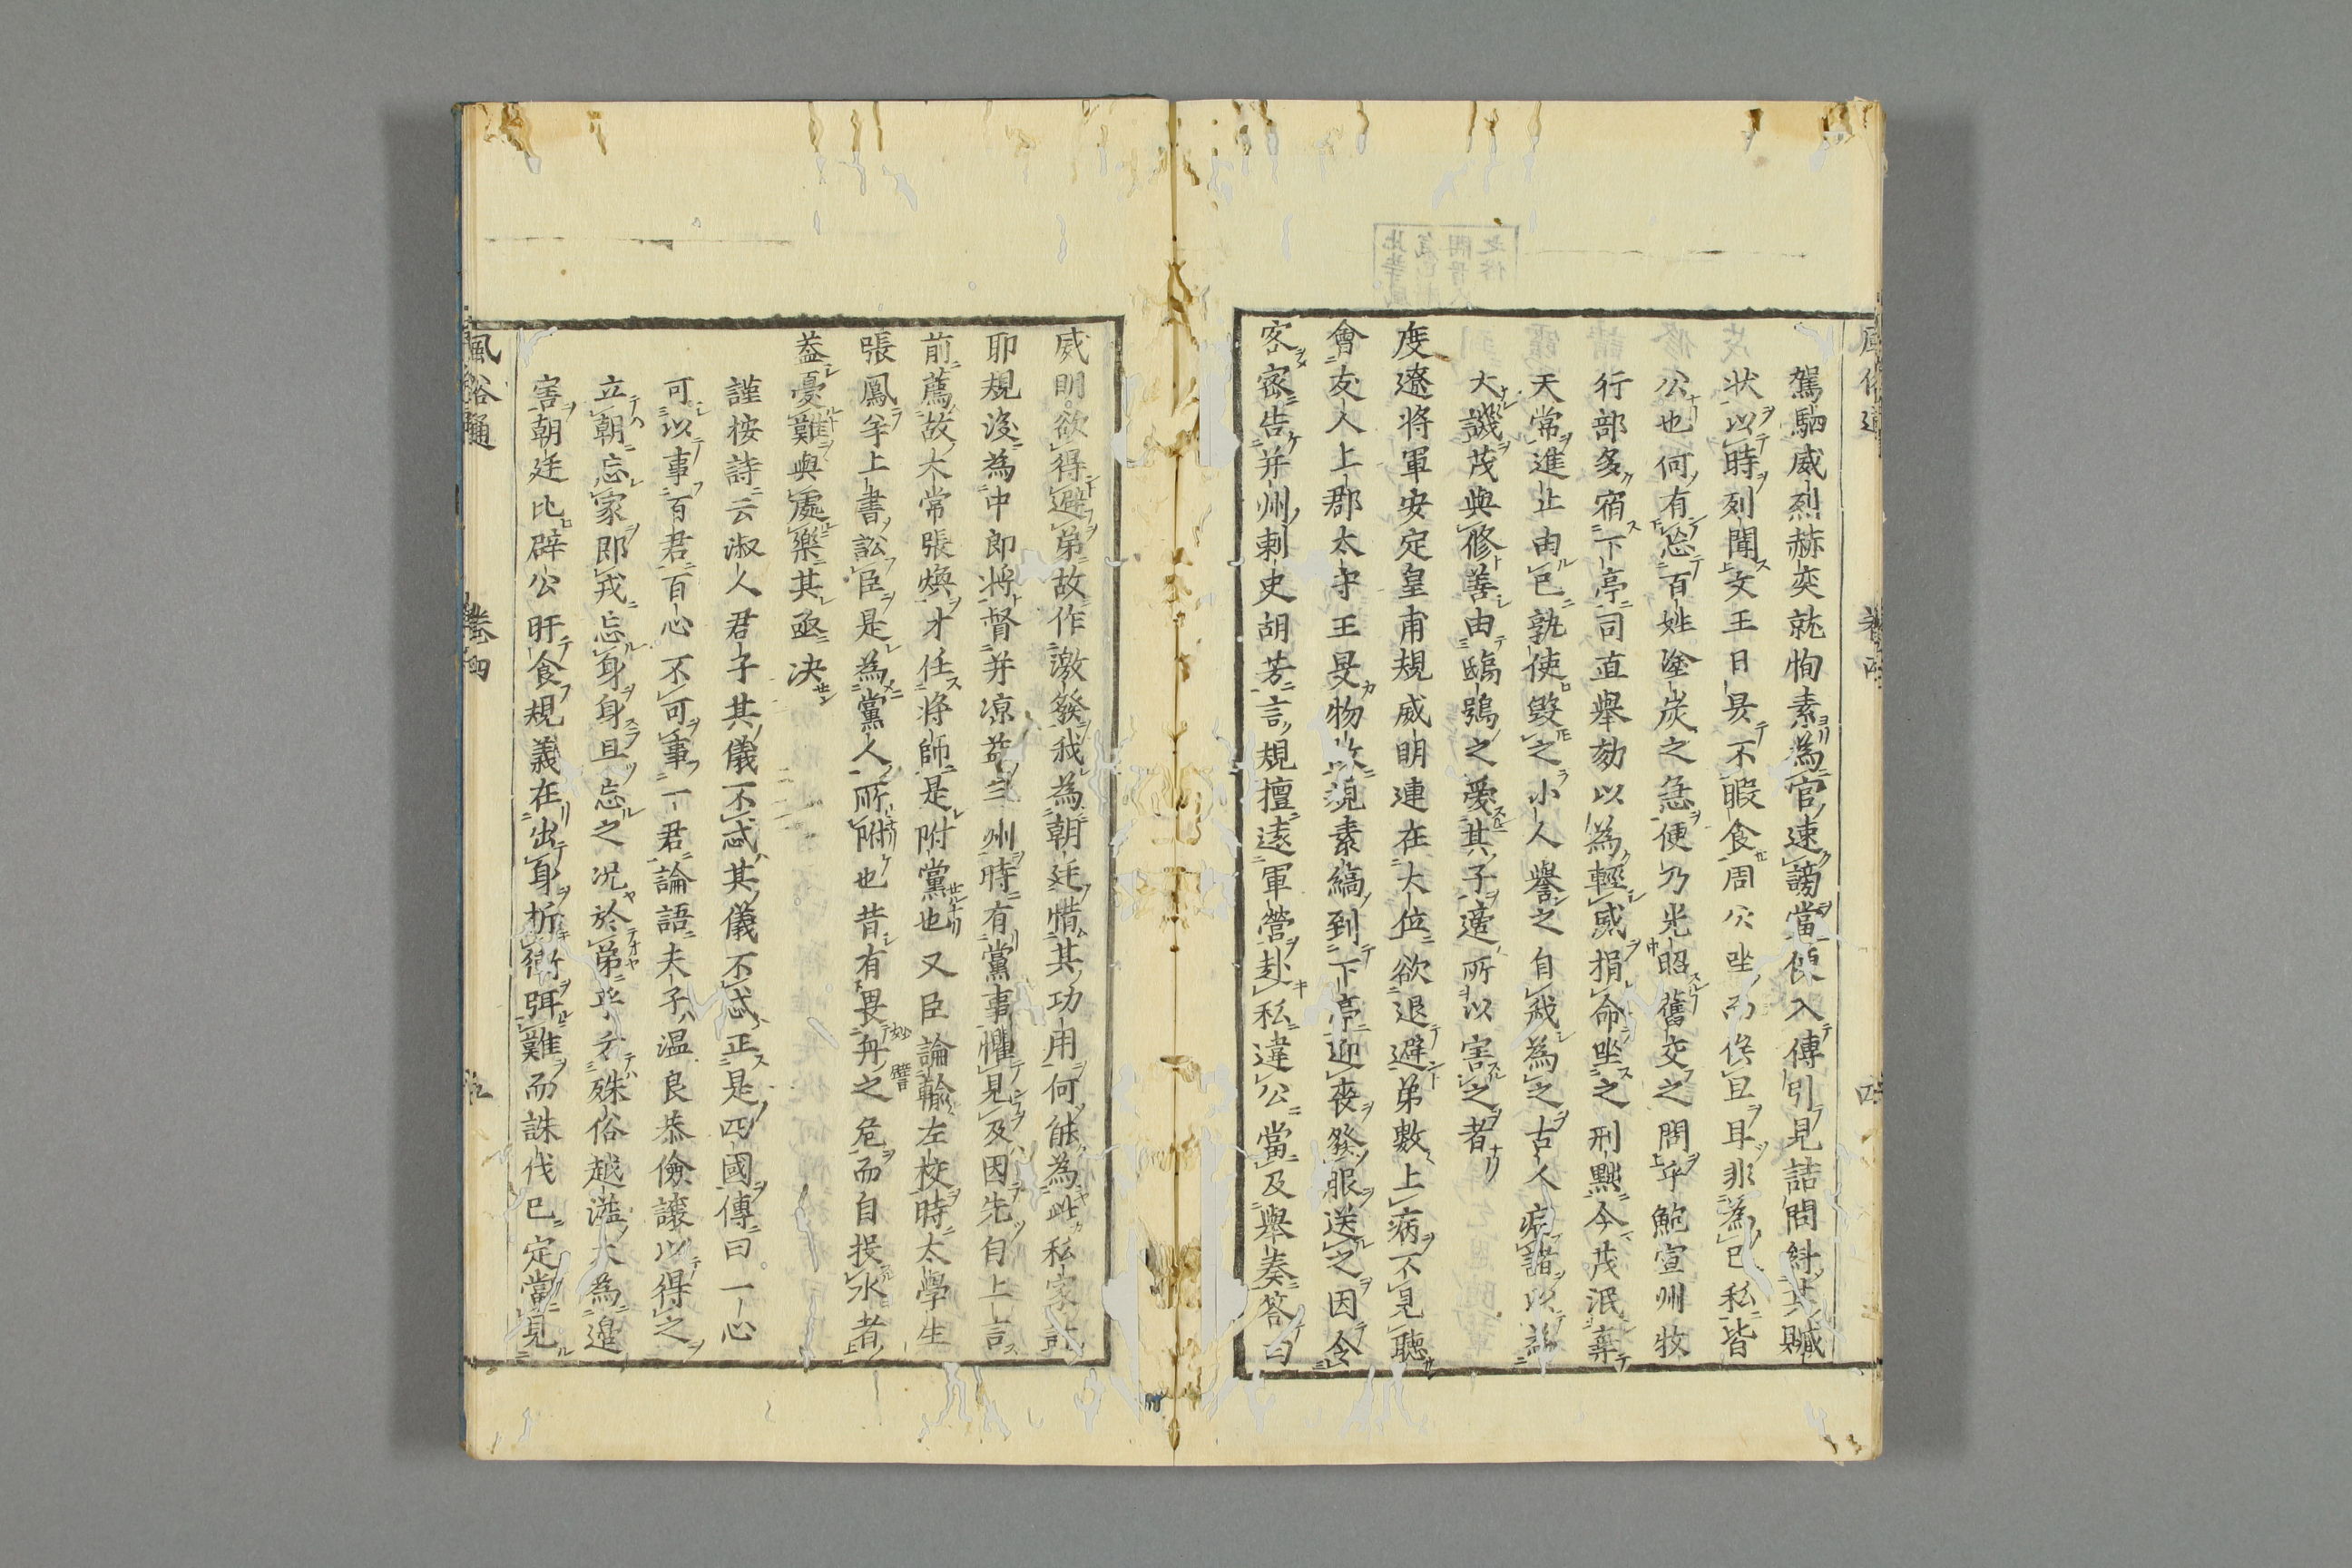 駕駟威烈赫奕就恂素為官速謗當便入傳引見詰問紏其贓
状以時列聞文王日昃不暇食周公坐而俟旦耳非為己私皆
公也何有忘百姓塗炭之急便乃光昭舊交之問乎鮑宣州牧
行部多宿下亭司直舉劾以為輕威損命坐之刑黜今茂泯棄
天常進止由己孰使毀之小人譽之自我為之古人病諸以
大譏茂與修善由鴟鴞之愛其子適所以害之者
度遼將軍安定皇甫規威明連在大位欲退避弟數上病不見聽
會友人上郡太守王旻物故規素縞到下亭迎喪發服送之因令
客密告并州刺史胡芳言規擅遠軍營赴私違公當及舉奏答曰
威明欲得避弟故作激發我為朝廷惜其功用何能為此私家計
耶規後為中郎將督并凉益三州時有黨事懼見及因先自上言
前薦故大常張煥才任將師是附黨也又臣論輸左校時太學生
張鳳等上書訟臣是為黨人所附也昔有畏舟之危而自投水者
蓋憂難與處樂其亟決
謹按詩云淑人君子其儀不忒其儀不忒正是四國傳曰一心
可以事百君百心不可事一君論語夫子温良恭儉讓以得之
立朝忘家即戎忘身身且忘之况於弟乎方殊俗越溢大為邊
害朝廷比辟公旰食規義在出身折衝弭難而誅伐已定當見
風俗通
卷四